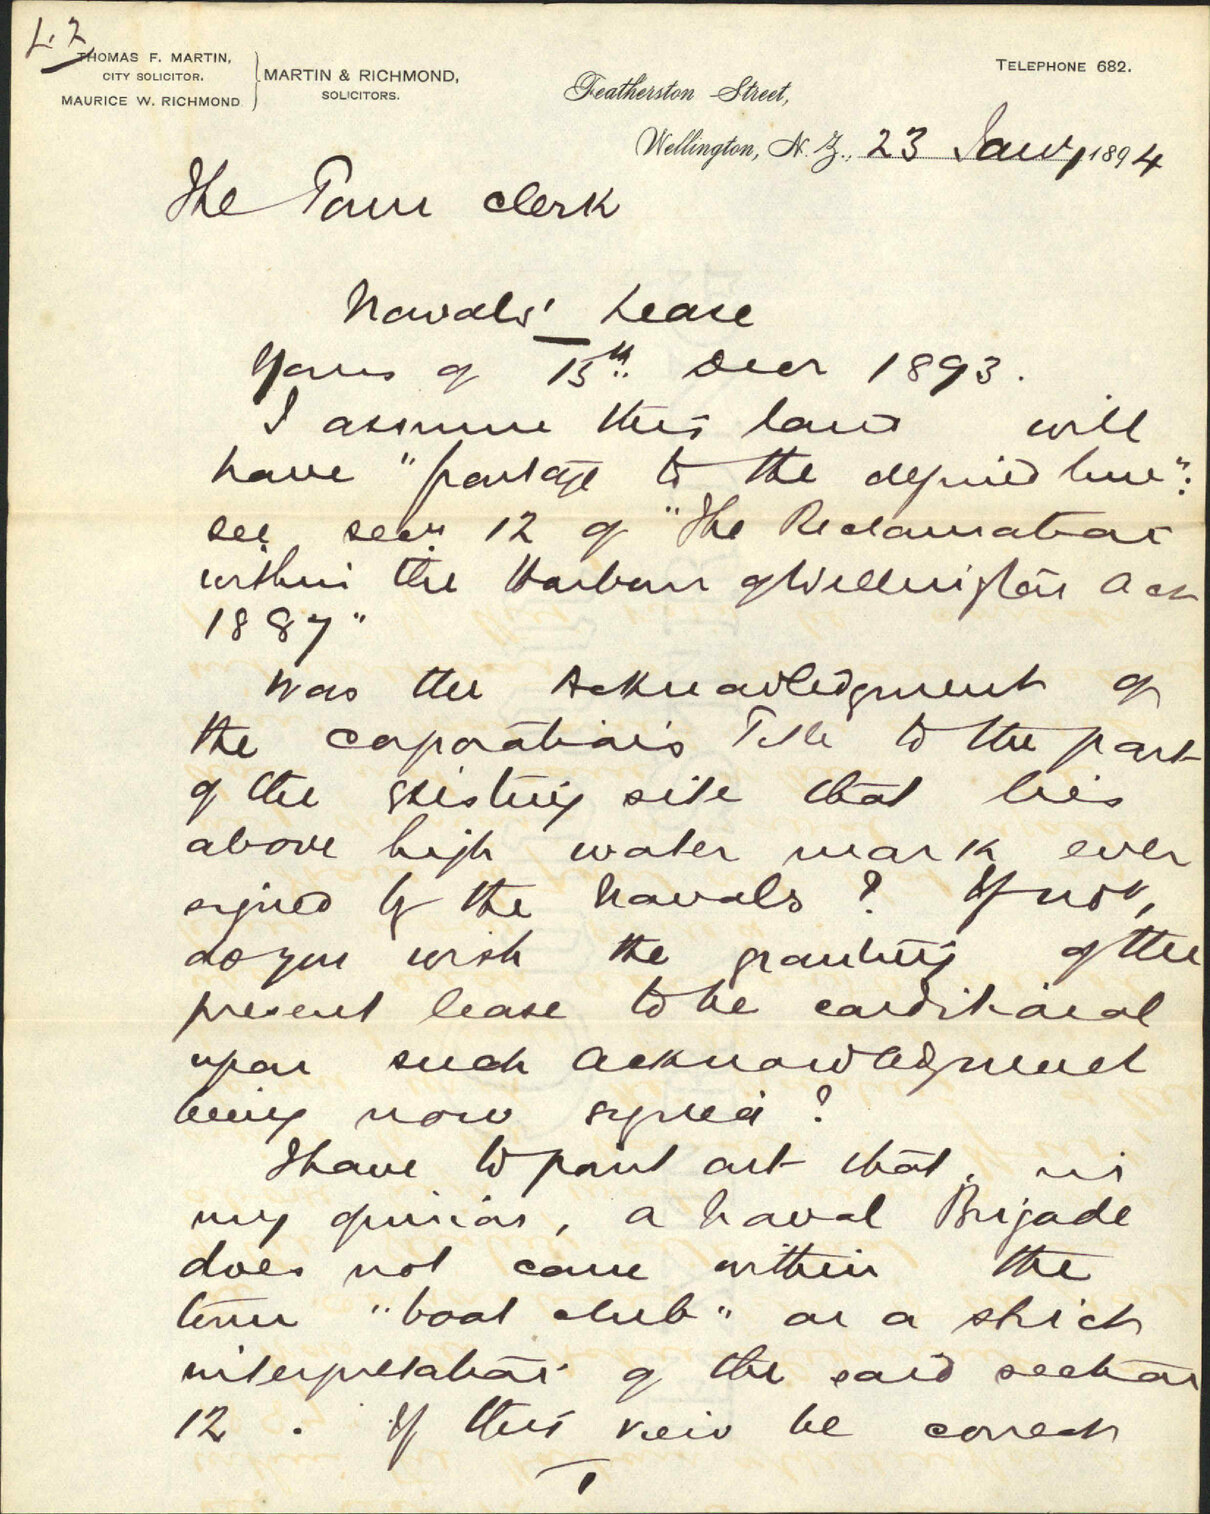 L. 2
THOMAS F. MARTIN,
CITY SOLICITOR.
MAURICE W. RICHMOND
MARTIN & RICHMOND,
SOLICITORS.
TELEPHONE 682.
Featherston Street,
Wellington, N. Z., 23 Jany 1894
The Town Clerk
Navals' Lease
Yours of 15th Decr 1893.
I assume this land will
have "frontage to the defined line":
see secn 12 of "The Reclamation
within the Harbour of Wellington Act
1887"
Was the Acknowledgment of
the corporation's Title to the part
of the existing site that lies
above high water mark ever
signed by the Navals? If not,
do you wish the granting of the
present lease to be conditional
upon such acknowledgment
being now signed?
I have to point out that, in
my opinion, a Naval Brigade
does not come within the
term "boat club" on a strict
interpretation of the said section
12. If this veiw be correct